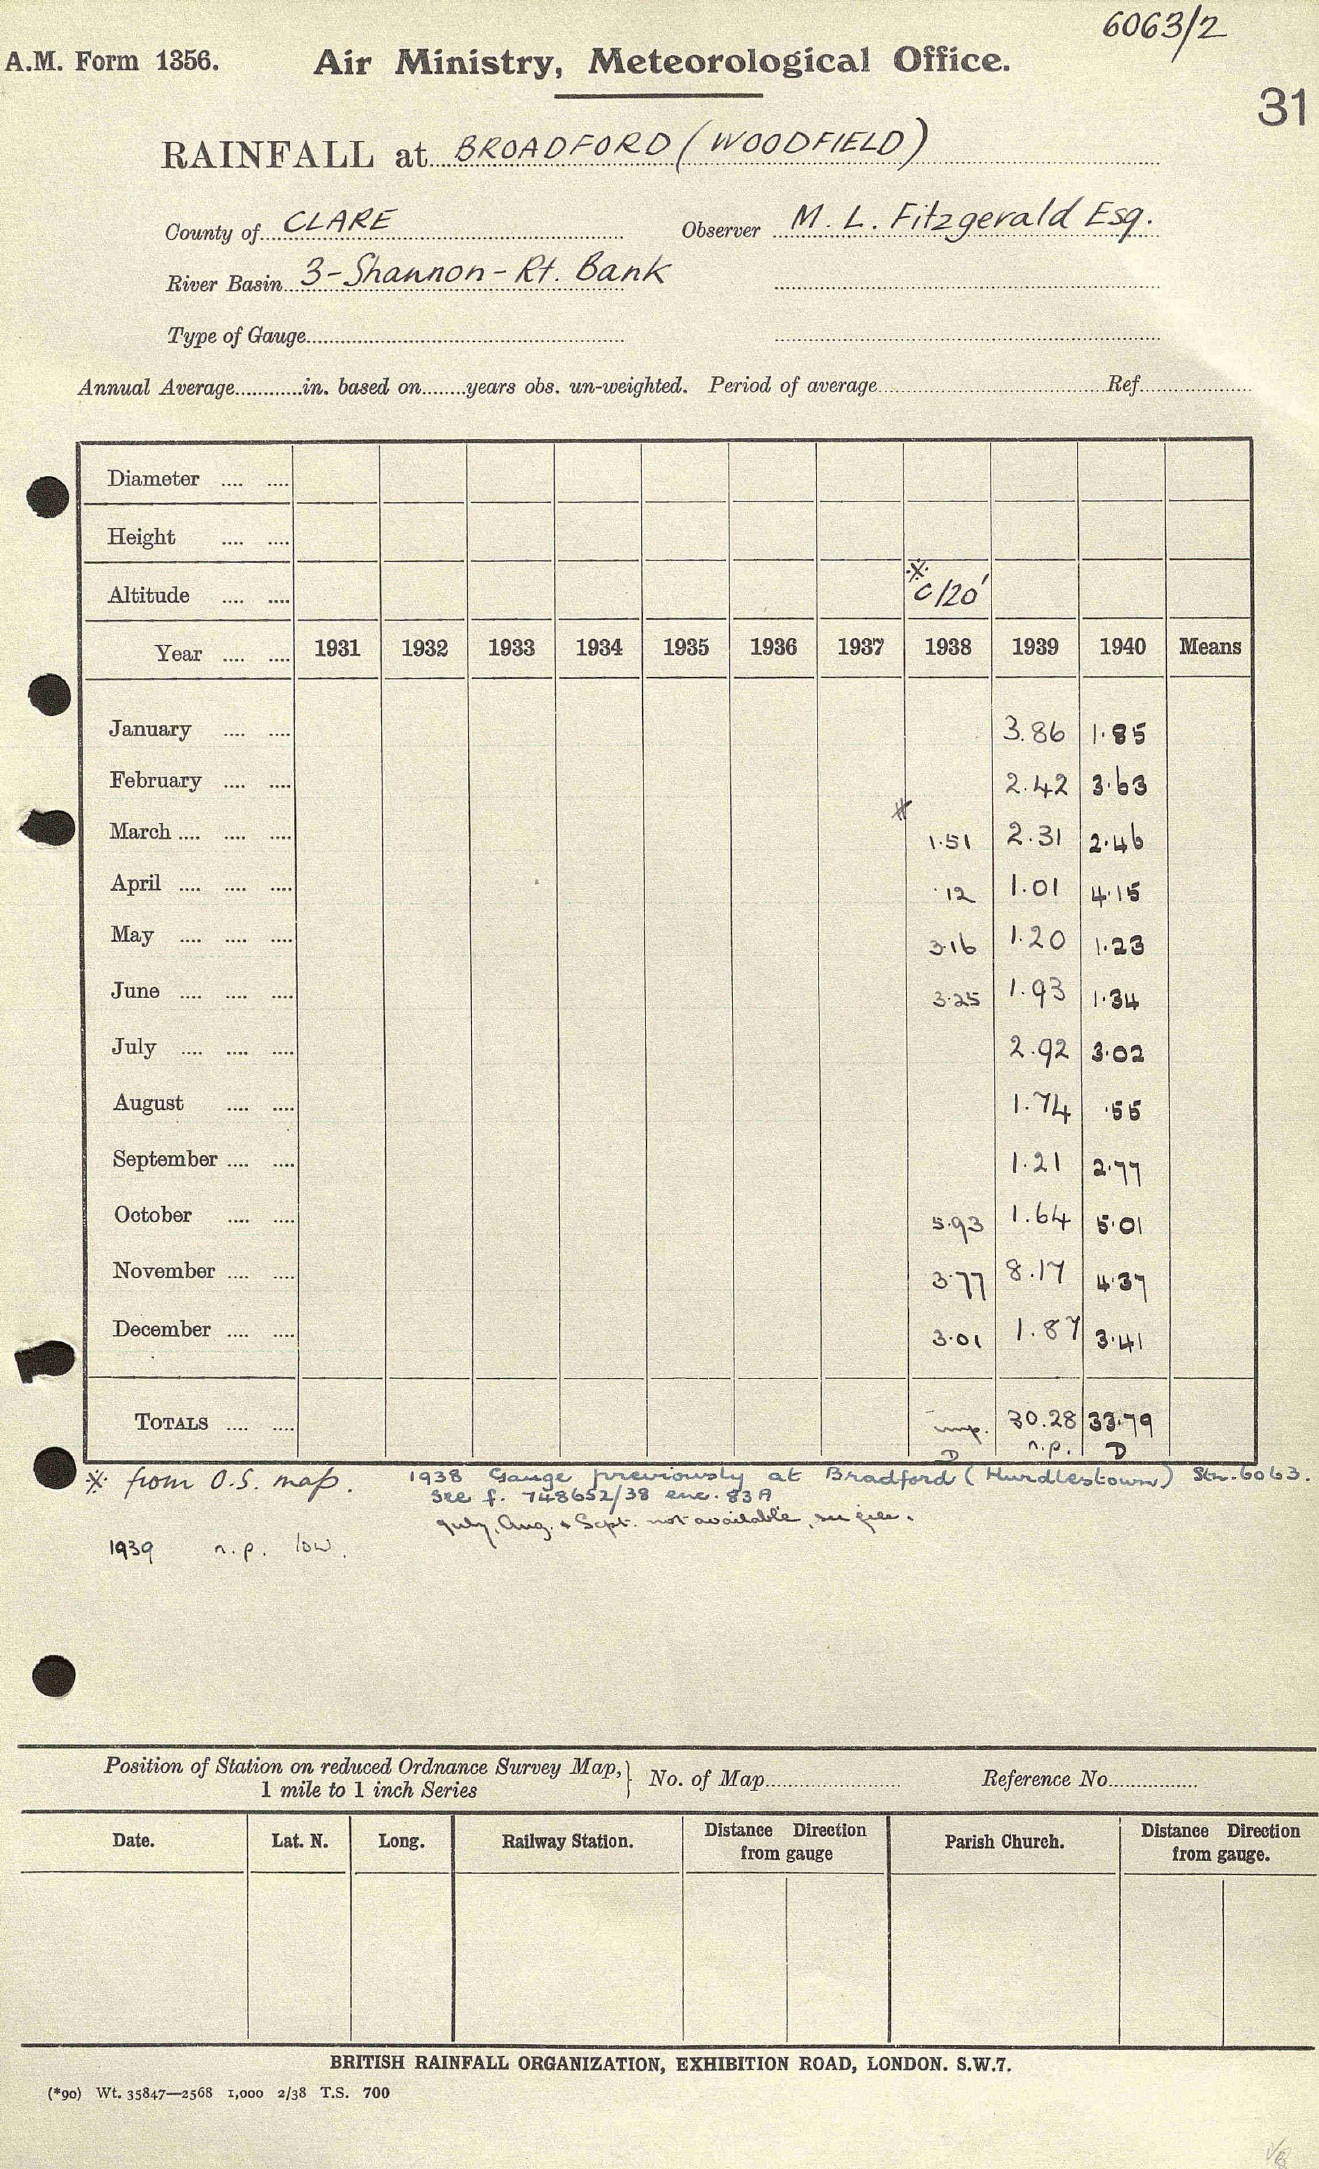 6063/2
A.M. Form 1356. Air Ministry, Meteorological Office.
31
RAINFALL at BROADFORD (WOODFIELD)
County of CLARE Observer M. L. Fitzgerald Esq.
River Basin 3-Shannon-Rt. Bank
Type of Gauge
Annual Average in. based on years obs. un-weighted. Period of average Ref
Diameter
Height
Altitude * c/20'
Year 1931 1932 1933 1934 1935 1936 1937 1938 1939 1940 Means
January 3.86 1.85
February 2.42 3.63
March * 1.51 2.31 2.46
April .12 1.01 4.15
May 3.16 1.20 1.23
June 3.25 1.93 1.34
July 2.92 3.02
August 1.74 .55
September 1.21 2.77
October 5.93 1.64 5.01
November 3.77 8.17 4.37
December 3.01 1.87 3.41
TOTALS imp. 30.28 33.79
D n.p. D
* from O.S. map. 1938 Gauge previously at Bradford (Hurdlestown) Stn. 6063.
See f. 748652/38 enc. 83A
July, Aug. & Sept. not available, see file.
1939 n.p. low.
Position of Station on reduced Ordnance Survey Map, } No. of Map Reference No
1 mile to 1 inch Series
Date. Lat. N. Long. Railway Station. Distance Direction from gauge Parish Church. Distance Direction from gauge.
BRITISH RAINFALL ORGANIZATION, EXHIBITION ROAD, LONDON. S.W.7.
(*90) Wt. 35847—2568 1,000 2/38 T.S. 700